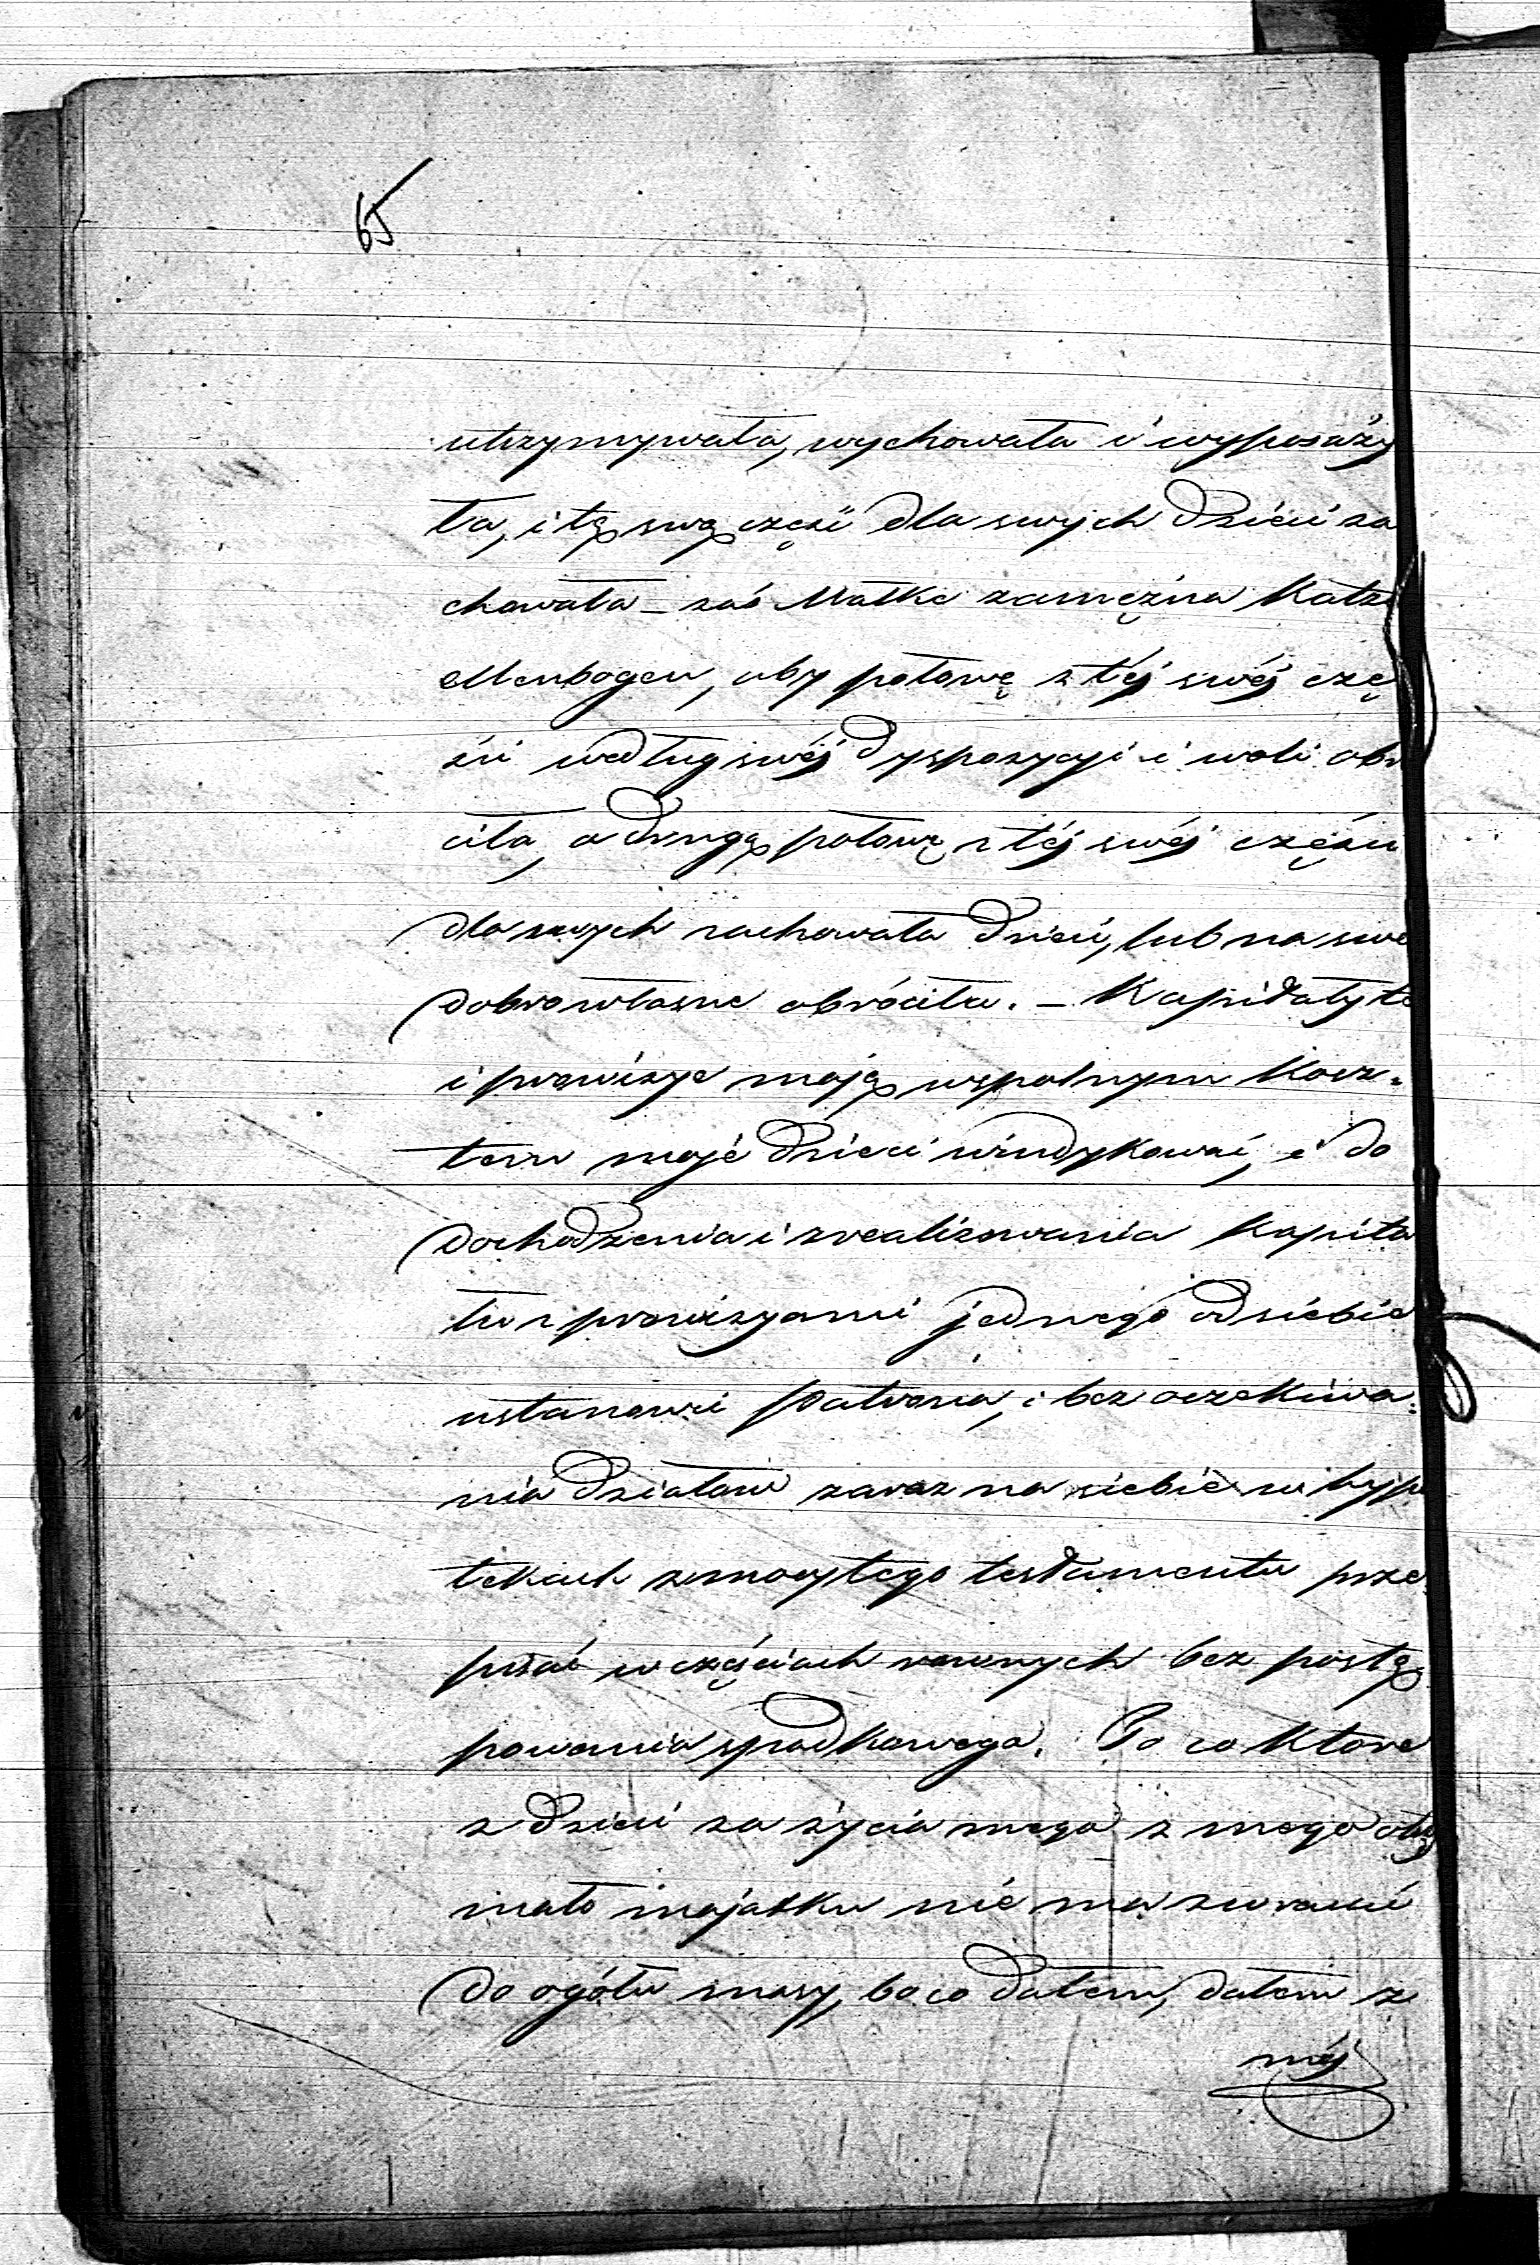 65
utrzymywała, wychowała i wyposaży
ła, i tę swą część dla swych dzieci za
chowała – zaś Malke zamężna Katz
ellenbogen, aby połowę z téj swéj czę
ści według swéj dyspozycyi i woli obró
ciła, a drugą połowę z téj swéj części
dla swych zachowała dzieci, lub na swe
dobro własne obróciła. – Kapitały te
i prowizye mają wspolnym kosz-
tem moje dzieci windykować, i do
dochodzenia i zrealizowania kapita
łu z prowizyami jednego od siebie
ustanowić Patrona, i bez oczekiwa-
nia działów zaraz na siebie w hypo
tekach z mocy tego testamentu prze
pisać w częściach rownych bez postę
powania spadkowego. To co ktore
z dzieci za życia mego z mego otrzy
mało majątku nie ma zwracać
do ogółu masy, bo co dałem, dałem z
méj